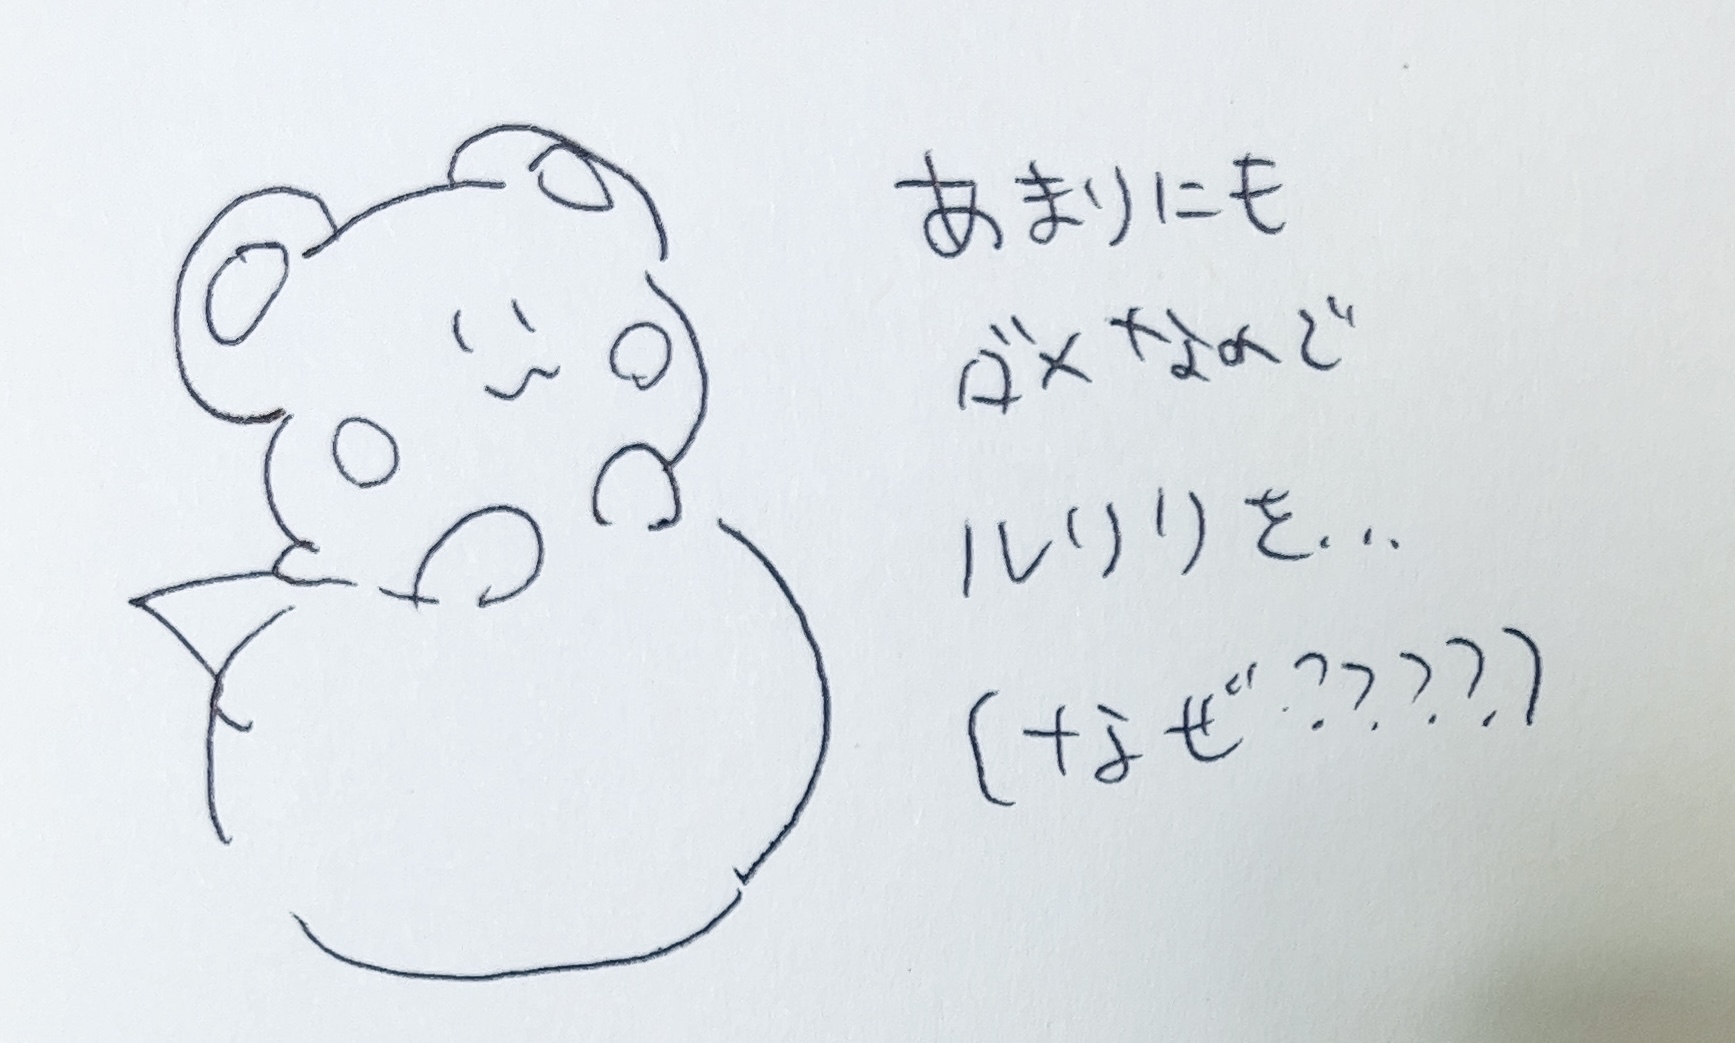 あまりにも
ダメなので
ルリリを...
(なぜ?????)